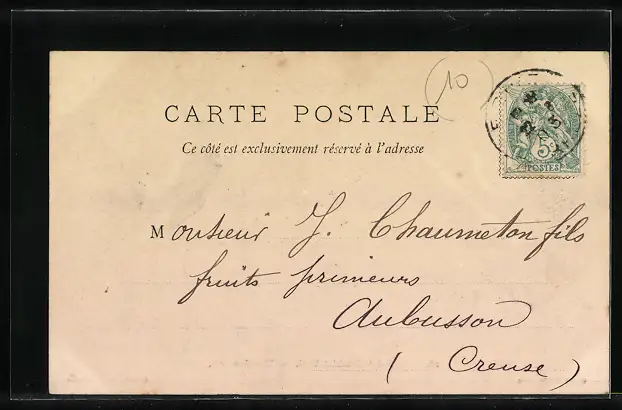 10
CARTE POSTALE
Ce côté est exclusivement réservé à l'adresse
5
POSTES
Monsieur J. Chaumeton fils
fruits primeurs
Aubusson
(Creuse)